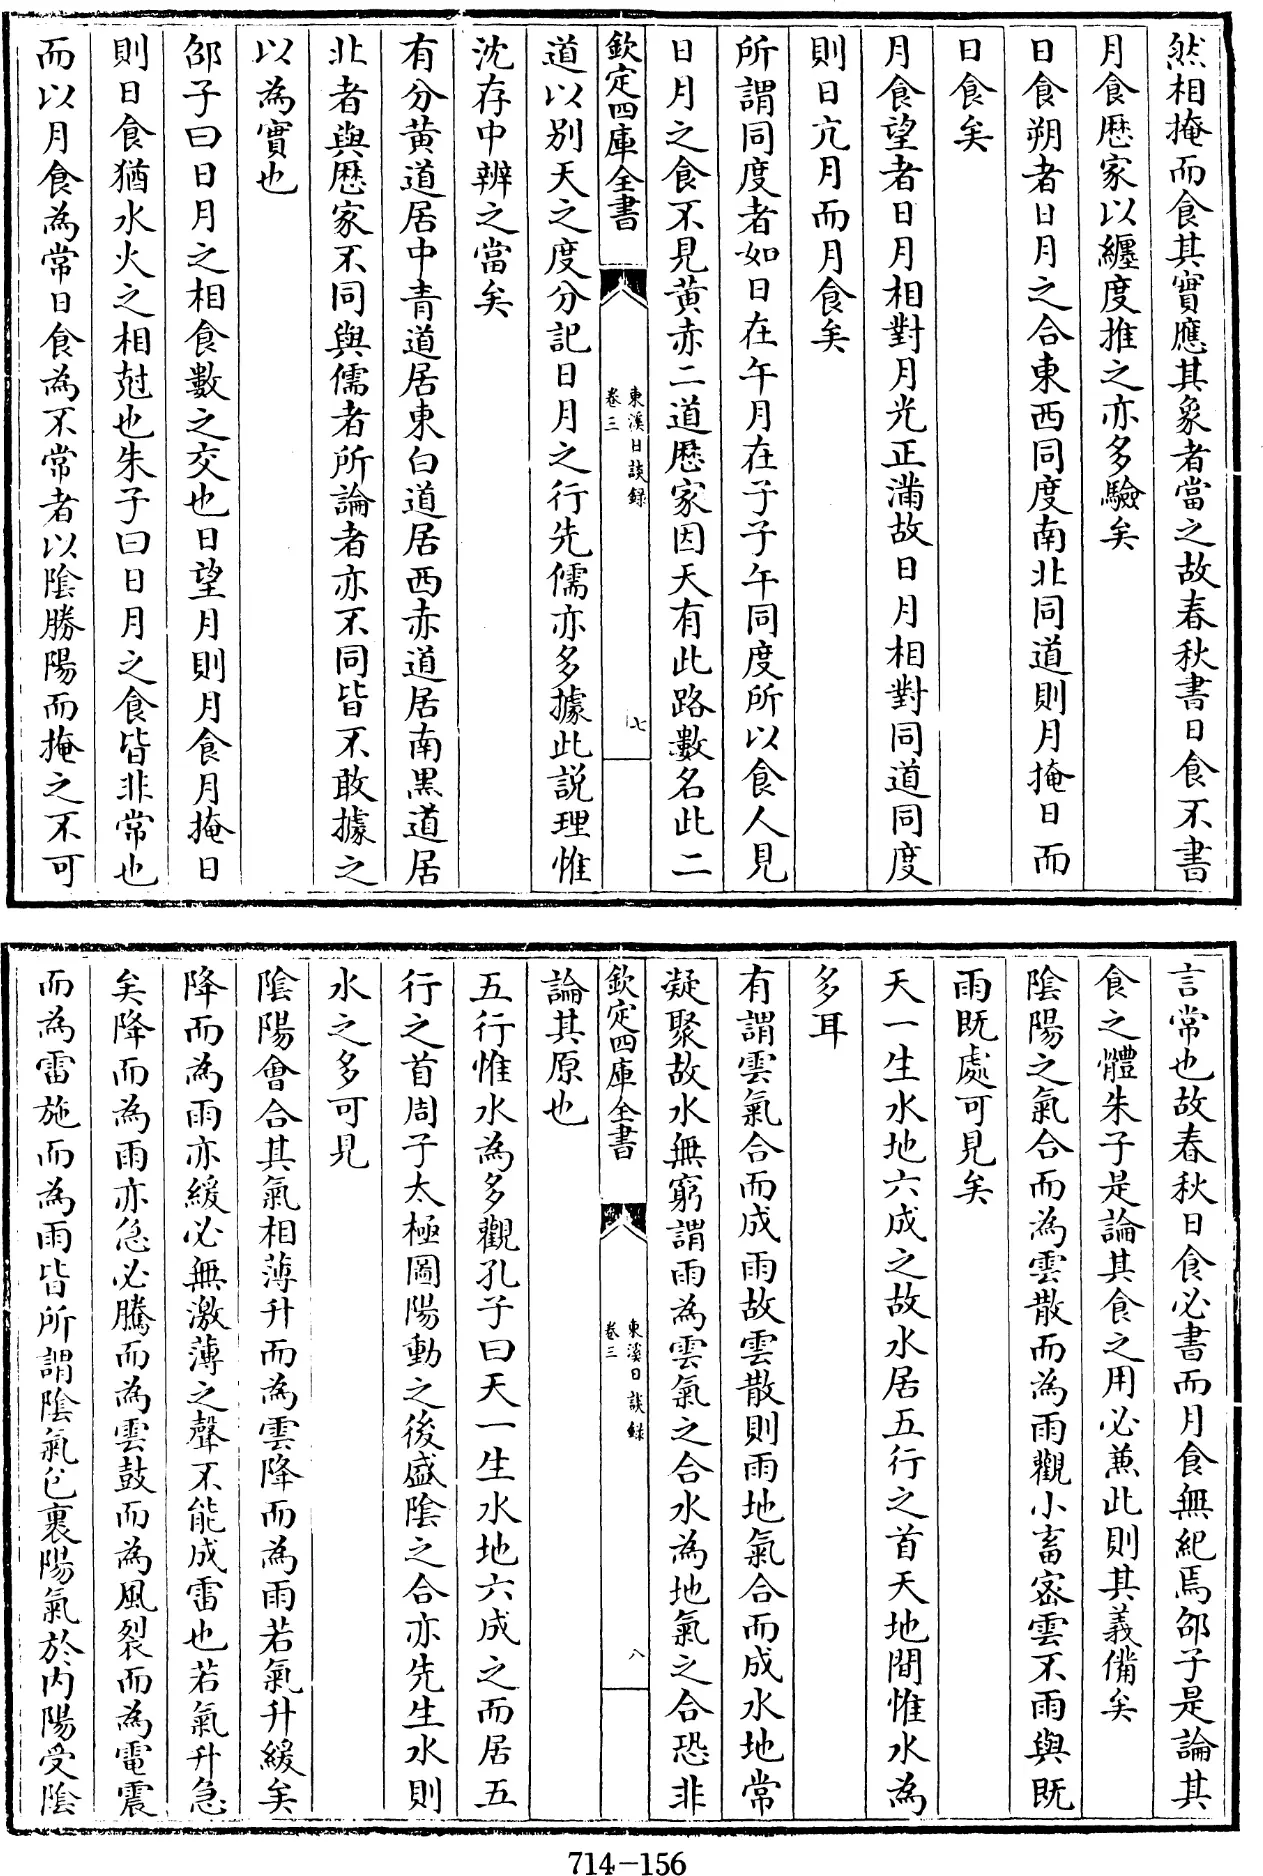 然相掩而食其實應其象者當之故春秋書日食不書
月食厯家以纒度推之亦多驗矣
日食朔者日月之合東西同度南北同道則月掩日而
日食矣
月食望者日月相對月光正滿故日月相對同道同度
則日亢月而月食矣
所謂同度者如日在午月在子子午同度所以食人見
日月之食不見黄赤二道厯家因天有此路數名此二
欽定四庫全書
東溪日談録
卷三
七
道以别天之度分記日月之行先儒亦多據此説理惟
沈存中辨之當矣
有分黄道居中青道居東白道居西赤道居南黒道居
北者與厯家不同與儒者所論者亦不同皆不敢據之
以為實也
邵子曰日月之相食數之交也日望月則月食月掩日
則日食猶水火之相尅也朱子曰日月之食皆非常也
而以月食為常日食為不常者以陰勝陽而掩之不可
言常也故春秋日食必書而月食無紀焉邵子是論其
食之體朱子是論其食之用必兼此則其義備矣
陰陽之氣合而為雲散而為雨觀小畜密雲不雨與既
雨既處可見矣
天一生水地六成之故水居五行之首天地間惟水為
多耳
有謂雲氣合而成雨故雲散則雨地氣合而成水地常
疑聚故水無窮謂雨為雲氣之合水為地氣之合恐非
欽定四庫全書
東溪日談録
卷三
八
論其原也
五行惟水為多觀孔子曰天一生水地六成之而居五
行之首周子太極圖陽動之後盛陰之合亦先生水則
水之多可見
陰陽會合其氣相薄升而為雲降而為雨若氣升緩矣
降而為雨亦緩必無激薄之聲不能成雷也若氣升急
矣降而為雨亦急必騰而為雲鼓而為風裂而為電震
而為雷施而為雨皆所謂陰氣包裹陽氣於内陽受陰
714-156